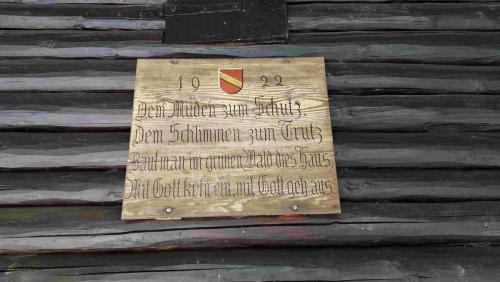 1922
Dem Müden zum Schutz,
Dem Schlimmen zum Trutz
Baut man im grünen Wald dies Haus.
Mit Gott kehr ein, mit Gott geh aus.